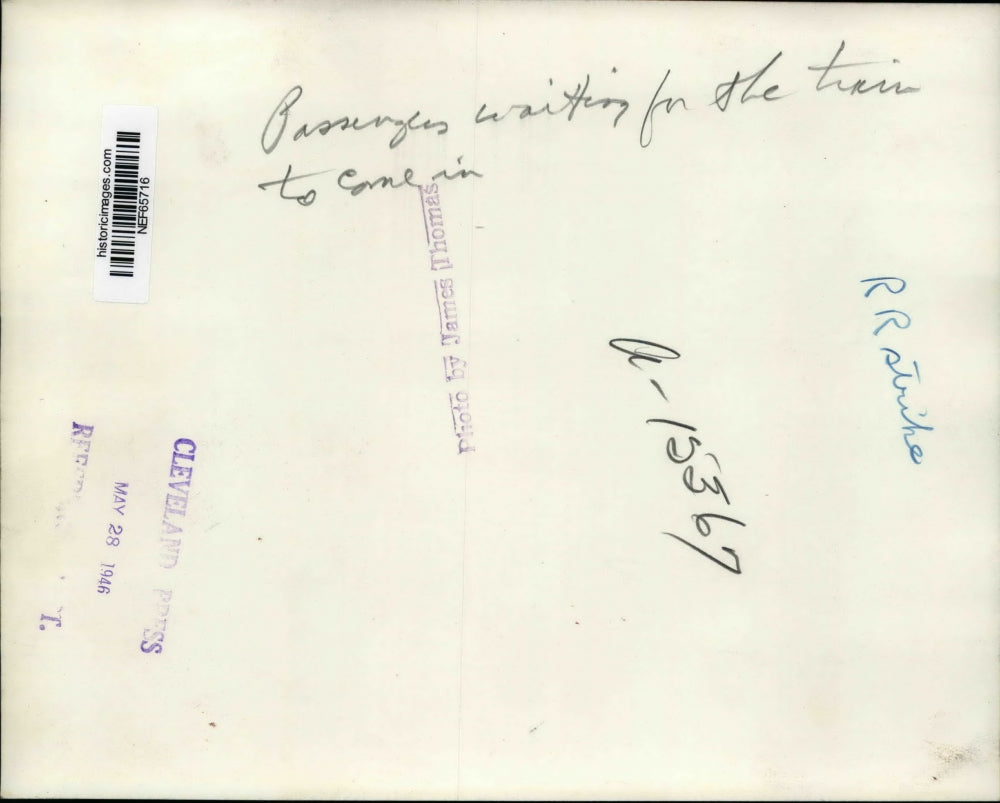 Passengers waiting for the train
to come in
historicimages.com
NEF65716
Photo by James Thomas
RR strike
a-15367
CLEVELAND PRESS
MAY 28 1946
T.